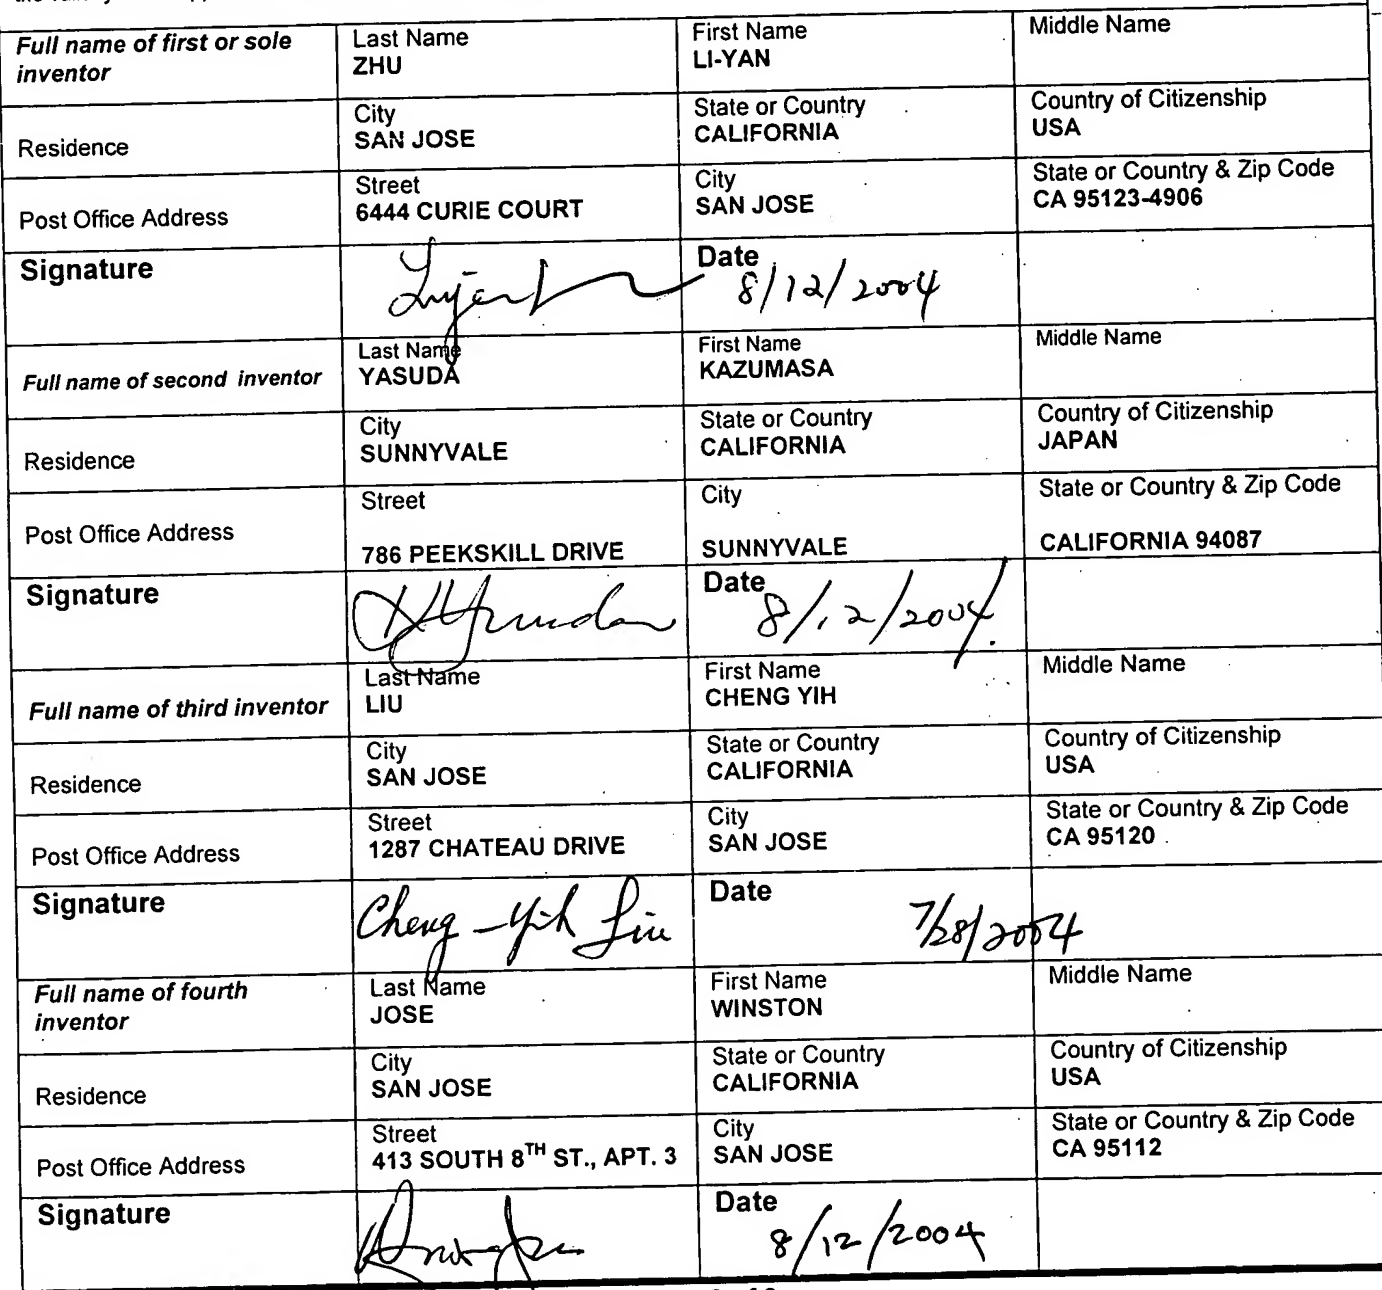 Full name of first or sole inventor Last Name ZHU First Name LI-YAN Middle Name
Residence City SAN JOSE State or Country CALIFORNIA Country of Citizenship USA
Post Office Address Street 6444 CURIE COURT City SAN JOSE State or Country & Zip Code CA 95123-4906
Signature Date 8/12/2004
Full name of second inventor Last Name YASUDA First Name KAZUMASA Middle Name
Residence City SUNNYVALE State or Country CALIFORNIA Country of Citizenship JAPAN
Post Office Address Street 786 PEEKSKILL DRIVE City SUNNYVALE State or Country & Zip Code CALIFORNIA 94087
Signature Date 8/12/2004
Full name of third inventor Last Name LIU First Name CHENG YIH Middle Name
Residence City SAN JOSE State or Country CALIFORNIA Country of Citizenship USA
Post Office Address Street 1287 CHATEAU DRIVE City SAN JOSE State or Country & Zip Code CA 95120
Signature Cheng-Yih Liu Date 7/28/2004
Full name of fourth inventor Last Name JOSE First Name WINSTON Middle Name
Residence City SAN JOSE State or Country CALIFORNIA Country of Citizenship USA
Post Office Address Street 413 SOUTH 8TH ST., APT. 3 City SAN JOSE State or Country & Zip Code CA 95112
Signature Date 8/12/2004